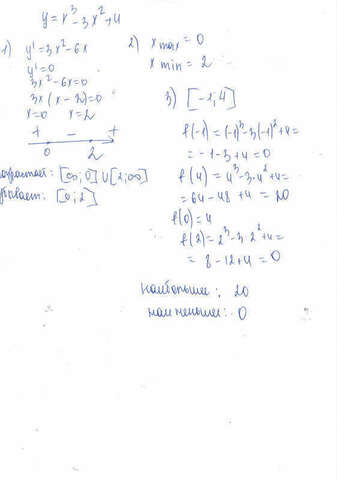 y = x³ - 3x² + 4
1) y' = 3x² - 6x
y' = 0
3x² - 6x = 0
3x (x - 2) = 0
x = 0 x = 2
+ - +
0 2
озрастает: [∞; 0] ∪ [2; ∞]
бывает: [0; 2]
2) x max = 0
x min = 2
3) [-1; 4]
f(-1) = (-1)³ - 3(-1)² + 4 =
= -1 - 3 + 4 = 0
f(4) = 4³ - 3·4² + 4 =
= 64 - 48 + 4 = 20
f(0) = 4
f(2) = 2³ - 3·2² + 4 =
= 8 - 12 + 4 = 0
наибольшее: 20
наименьшее: 0